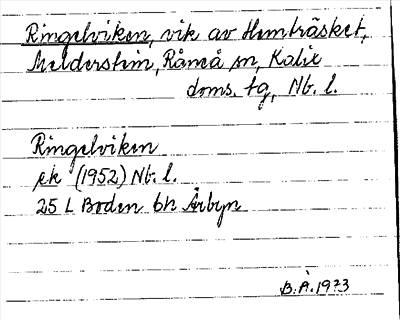 Ringelviken, vik av Hemträsket,
Melderstein, Råneå sn, Kalix
doms. tg, Nb. l.
Ringelviken
ek (1952) Nb. l.
25 L Boden 6h Årbyn
B. A. 1973